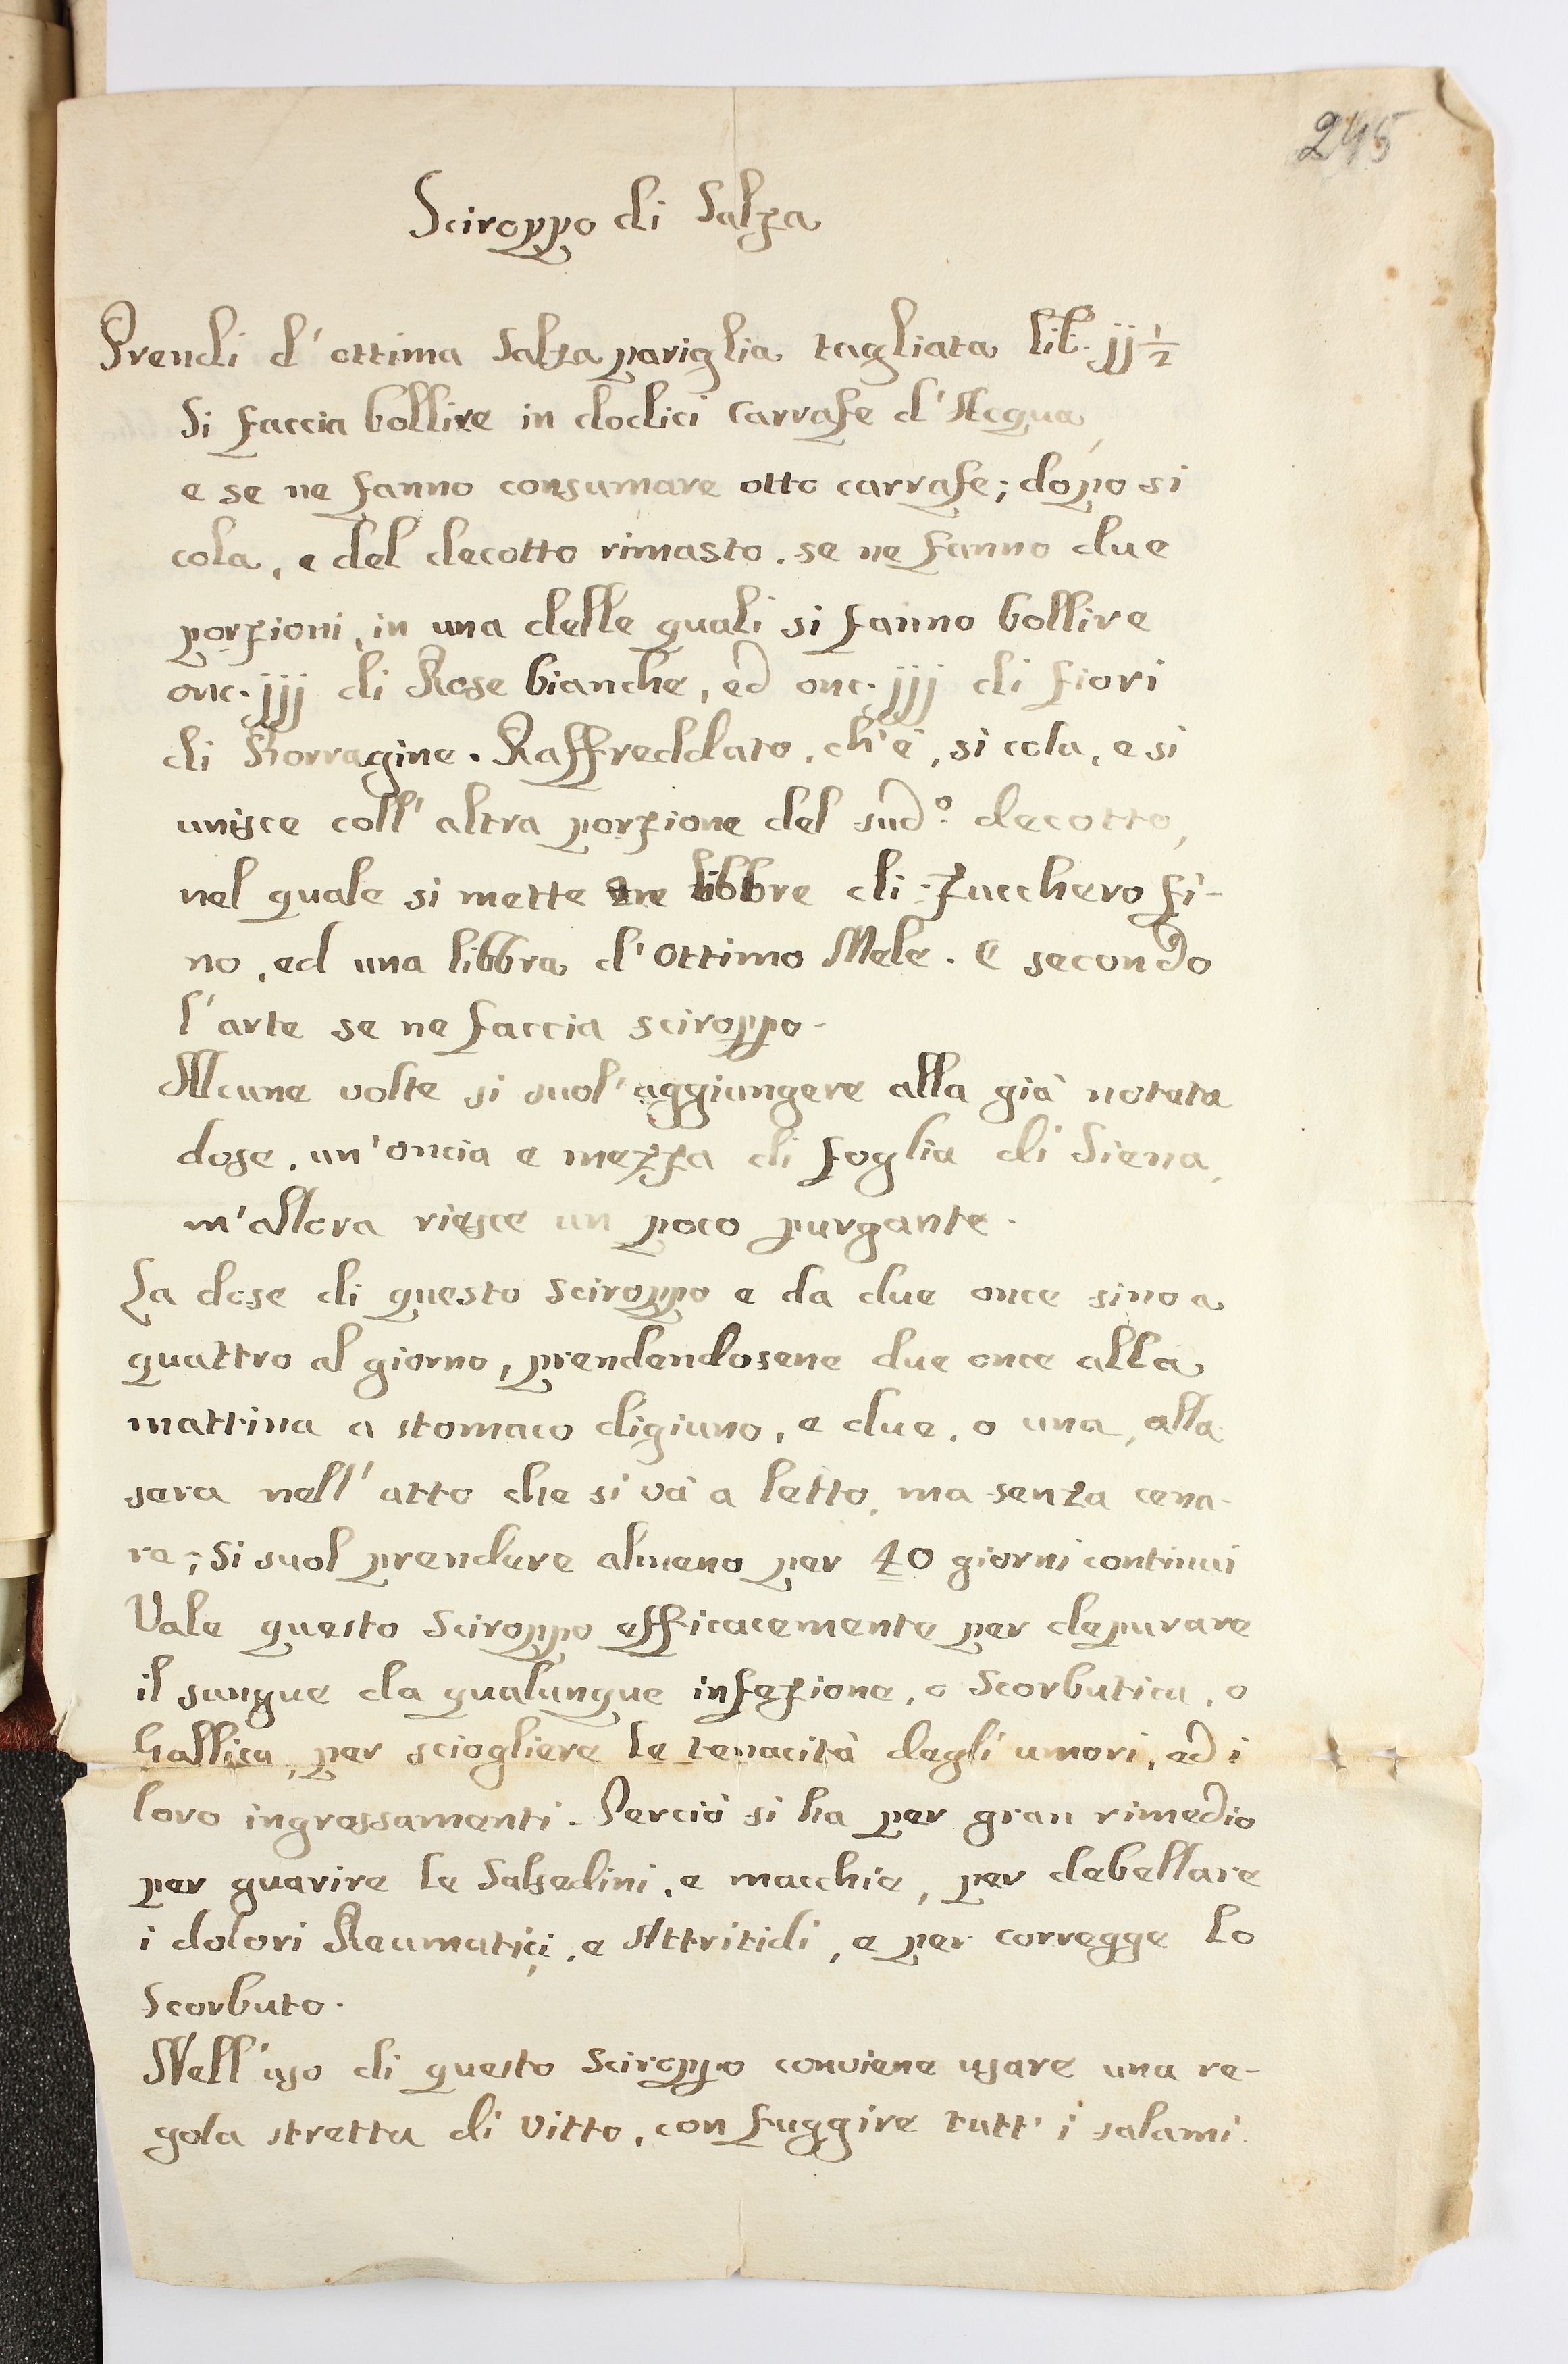 245
Sciroppo di Salza
Prendi d'ottima Salza pariglia tagliata lib. jj ½
Si faccia bollire in dodici Carrafe d'Acqua,
e se ne fanno consumare otto carrafe; dopo si
cola, e del decotto rimasto, se ne fanno due
porzioni, in una delle quali si fanno bollire
onc. jjj di Rose bianche, ed onc. jjj di fiori
di Borragine. Raffreddato, ch'è, si cola, e si
unisce coll'altra porzione del sud.º decotto,
nel quale si mette tre libbre di Zucchero fi-
no, ed una libbra d'Ottimo Mele. E secondo
l'arte se ne faccia sciroppo.
Alcune volte si suol'aggiungere alla già notata
dose, un'oncia e mezza di foglia di Siena,
m'allora riesce un poco purgante.
La dose di questo Sciroppo e da due once sino a
quattro al giorno, prendendosene due once alla
mattina a stomaco digiuno, e due, o una, alla
sera nell'atto che si và a letto, ma senza cena-
re; Si suol prendere almeno per 40 giorni continui
Vale questo Sciroppo efficacemente per depurare
il sangue da qualunque infezione, o Scorbutica, o
Gallica, per sciogliere le tenacità degli umori, ed i
loro ingrossamenti. Perciò si ha per gran rimedio
per guarire le Salsedini, e macchie, per debellare
i dolori Reumatici, e Attritidi, e per corregge lo
Scorbuto.
Nell'uso di questo Sciroppo conviene usare una re-
gola stretta di vitto, con fuggire tutt'i salami.